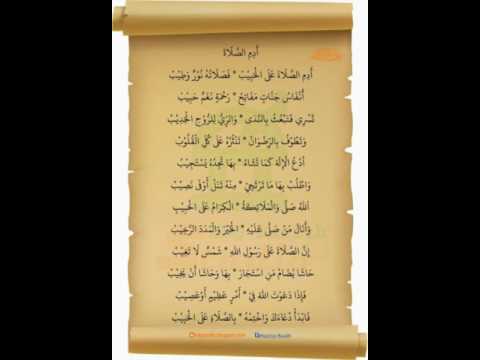 أَدِمِ الصَّلَاةَ
أَدِمِ الصَّلَاةَ عَلَى الْحَبِيْبْ * فَصَلَاتُهُ نُوْرٌ وَطِيْبْ
أَنْفَاسُ جَنَّاتٍ مَفَاتِحُ * رَحْمَةٍ نَغَمٌ حَبِيْبْ
تَسْرِي فَتَبْعَثُ بِالنَّدَى * وَالرَّيِّ لِلرُّوْحِ الْجَدِيْبْ
وَتَطُوْفُ بِالرِّضْوَانْ * تَنْثُرُهُ عَلَى كُلِّ الْقُلُوْبْ
اُدْعُ الْإِلٰهَ كَمَا تَشَاءُ * بِهَا تَجِدْهُ يَسْتَجِيْبْ
وَاطْلُبْ بِهَا مَا تَرْتَجِيْ * مِنْهُ تَنَلْ أَوْفَى نَصِيْبْ
اللهُ صَلَّى وَالْمَلَائِكَةُ * الْكِرَامُ عَلَى الْحَبِيْبْ
وَأَنَالَ مَنْ صَلَّى عَلَيْهِ * الْخَيْرَ وَالْمَدَدَ الرَّحِيْبْ
إِنَّ الصَّلَاةَ عَلَى رَسُوْلِ اللهِ * شَمْسٌ لَا تَغِيْبْ
حَاشَا يُضَامُ مَنِ اسْتَجَارَ * بِهَا وَحَاشَا أَنْ يَخِيْبْ
فَإِذَا دَعَوْتَ اللهَ فِيْ * أَمْرٍ عَظِيْمٍ أَوْ عَصِيْبْ
فَابْدَأْ دُعَاءَكَ وَاخْتِمْهُ * بِالصَّلَاةِ عَلَى الْحَبِيْبْ